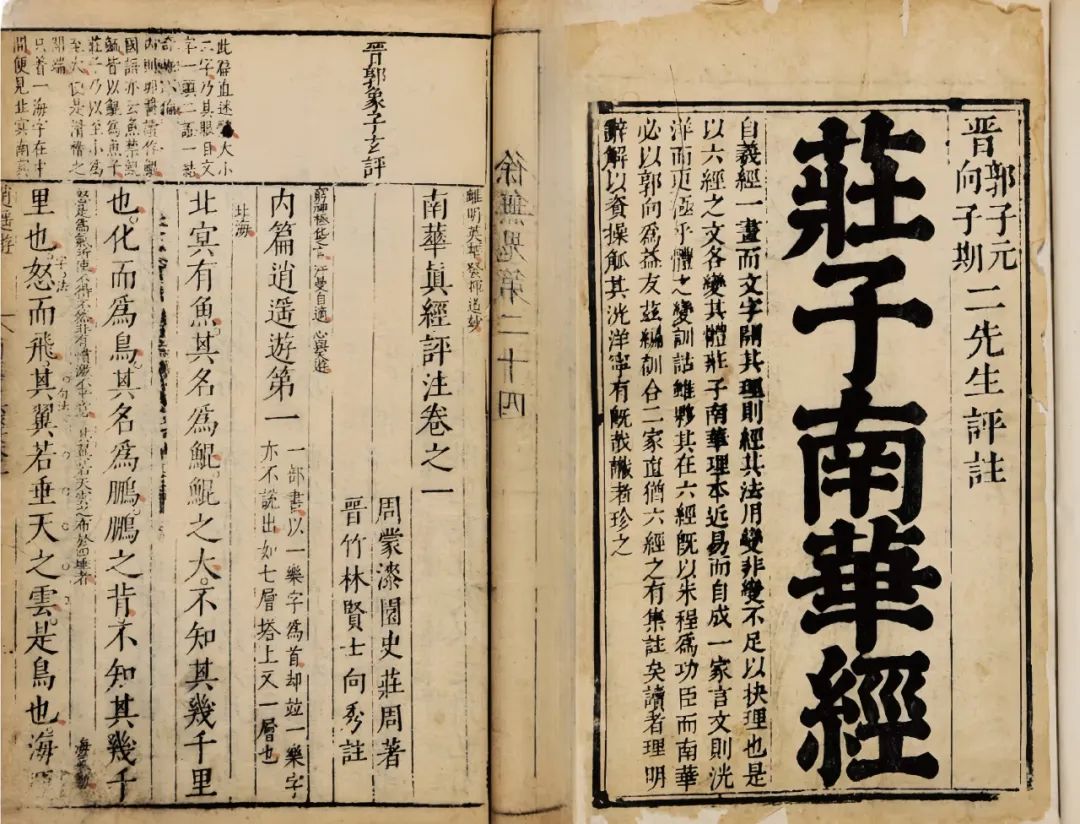 晋郭子元向子期二先生評註
莊子南華經
自羲經一畫而文字闢其理則經其法用變非變不足以抉理也是
以六經之文各變其體莊子南華理本近易而自成一家言文則洸
洋而更極乎體之變訓詁雖夥其在六經旣以朱程爲功臣而南華
必以郭向爲益友茲編刻合二家直猶六經之有集註矣讀者理明
辭解以資操觚其洸洋寧有旣哉識者珍之
徐無鬼第二十四
晋郭象子玄評
南華眞經評注卷之一
周蒙漆園史莊周著
晋竹林賢士向秀註
內篇逍遥遊第一
一部書以一樂字爲首却竝一樂字
亦不說出如七層塔上又一層也
北海
北冥有魚其名爲鯤鯤之大不知其幾千里
也化而爲鳥其名爲鵬鵬之背不知其幾千
里也怒而飛其翼若垂天之雲是鳥也海
字法
句法
大小
二字乃其眼目文
字一頭二話一話
國語亦云魚禁鯤
鮞皆以鯤爲魚子
莊子乃以至小爲
至大便是滑稽之
開端
只着一海字在中
間便見北冥南冥
逍遥遊